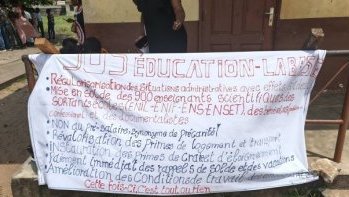 SOS ÉDUCATION-LABASA
• Régularisation des situations administratives avec effet
• Mise en solde des 900 enseignants scientifiques des
SORTANTS des (ENIL-ENIC-ENSENSET), des
et documentalistes
• Fin du pré-salaire, synonyme de précarité!
• Revalorisation des Primes de logement et transport
• Institution des primes de Craie et d'éloignement
• Paiement immédiat des rappels de solde et des vacations
• Amélioration des Conditions de travail
Cette fois-Ci, C'est tout ou rien